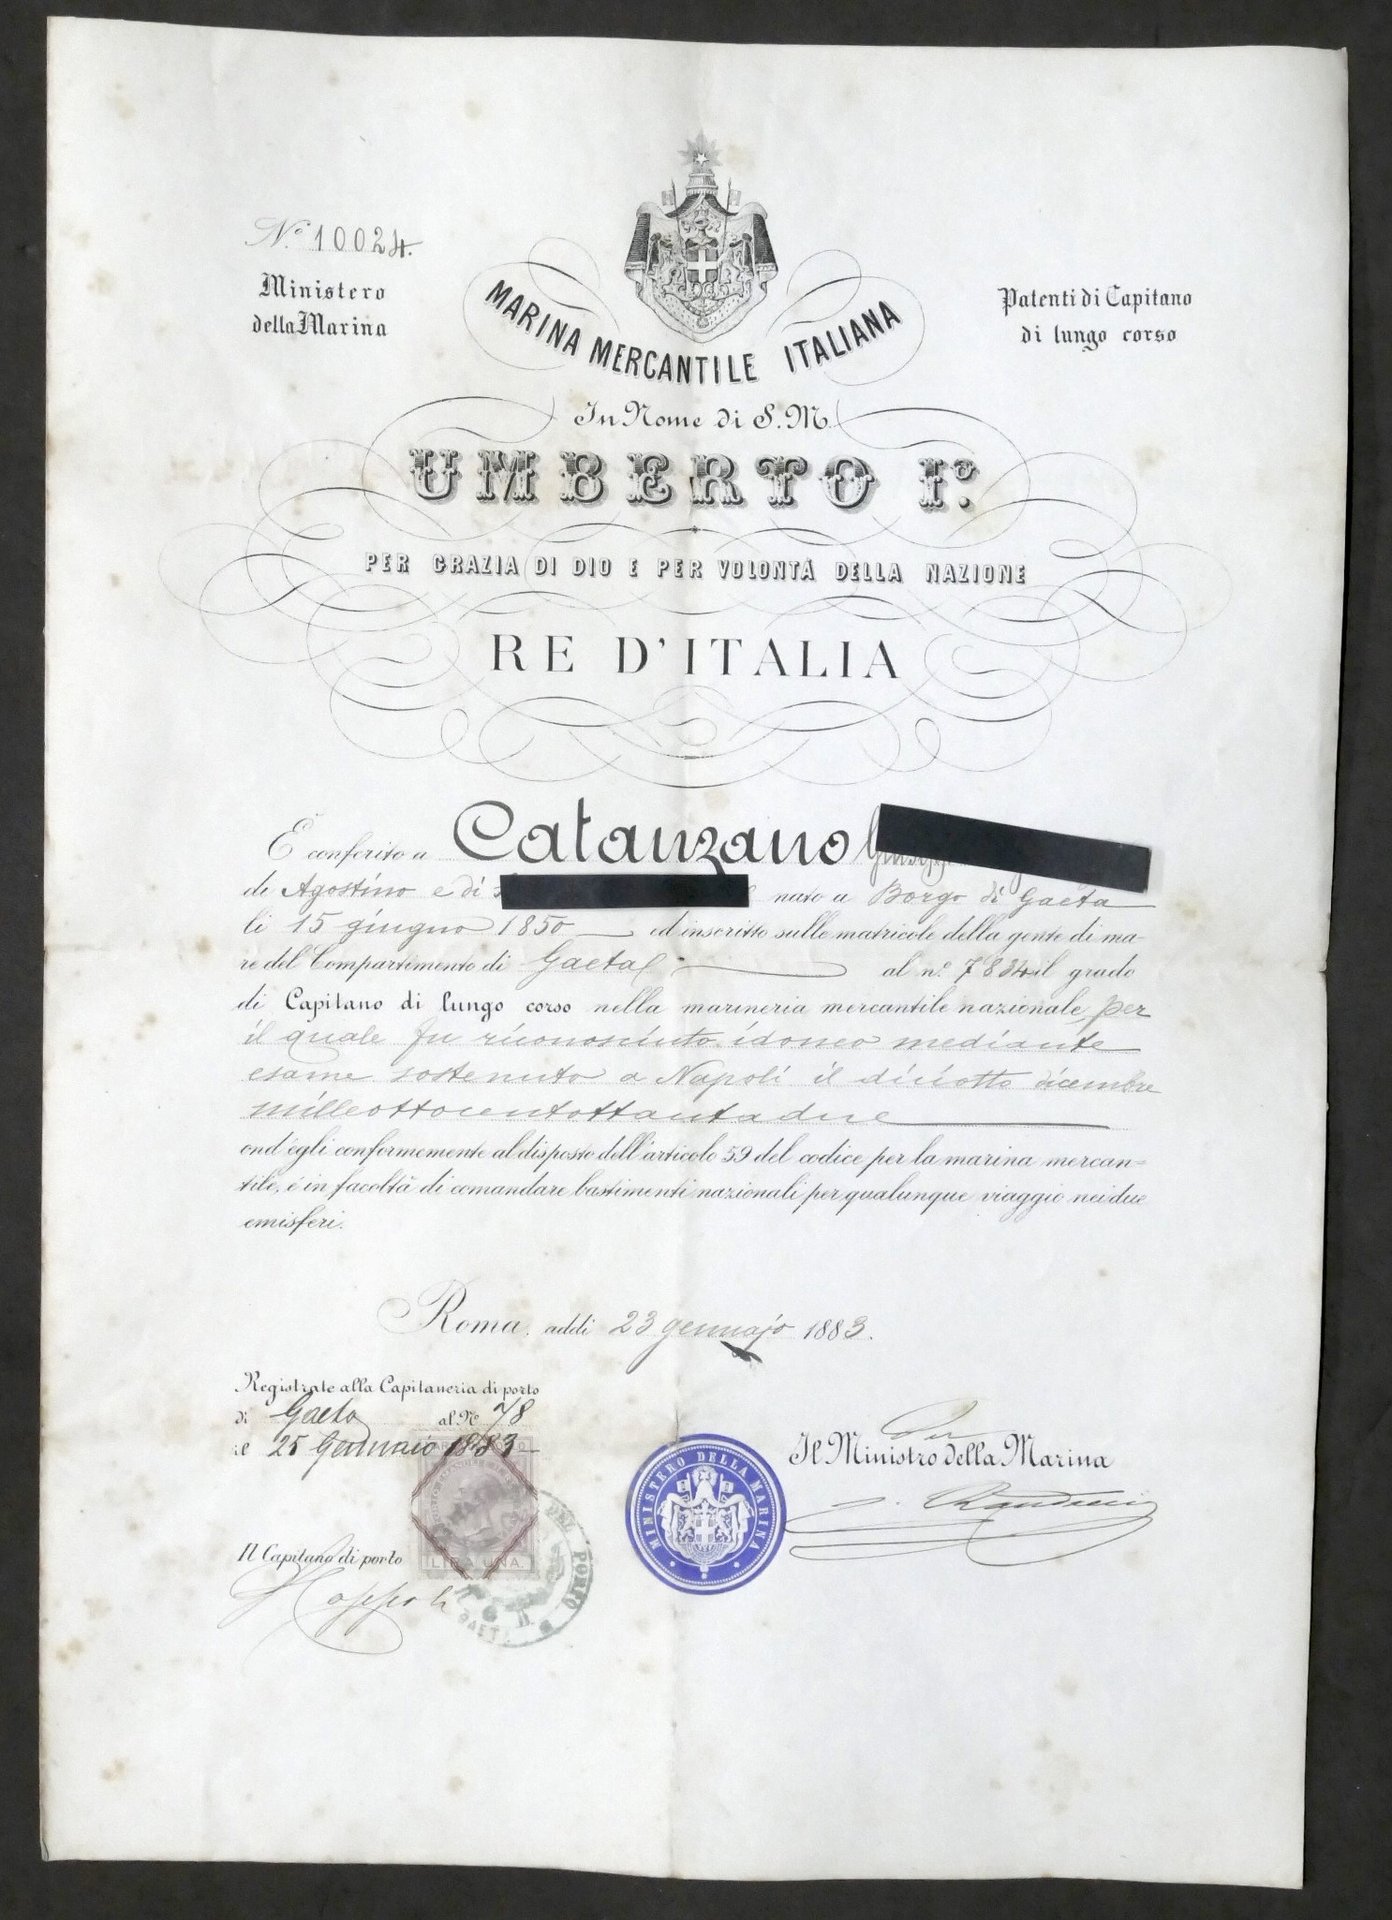 N.º 10024.
Ministero
della Marina
Patenti di Capitano
di lungo corso
MARINA MERCANTILE ITALIANA
In Nome di S. M.
UMBERTO Iº.
PER GRAZIA DI DIO E PER VOLONTÀ DELLA NAZIONE
RE D'ITALIA
È conferito a Catanzano
di Agostino e di nato a Borgo di Gaeta
li 15 giugno 1850 ed inscritto sulle matricole della gente di ma-
re del Compartimento di Gaeta al nº. 7834 il grado
di Capitano di lungo corso nella marineria mercantile nazionale per
il quale fu riconosciuto idoneo mediante
esame sostenuto a Napoli il diciotto dicembre
milleottocentottantadue
ond'egli conformemente al disposto dell'articolo 59 del codice per la marina mercan-
tile, è in facoltà di comandare bastimenti nazionali per qualunque viaggio nei due
emisferi.
Roma, addi 23 gennajo 1883.
Registrate alla Capitaneria di porto
di Gaeta al Nº 78
il 25 Gennaio 1883
LIRA UNA
DEL PORTO
GAETA
Il Capitano di porto
MINISTERO DELLA MARINA
Per
Il Ministro della Marina